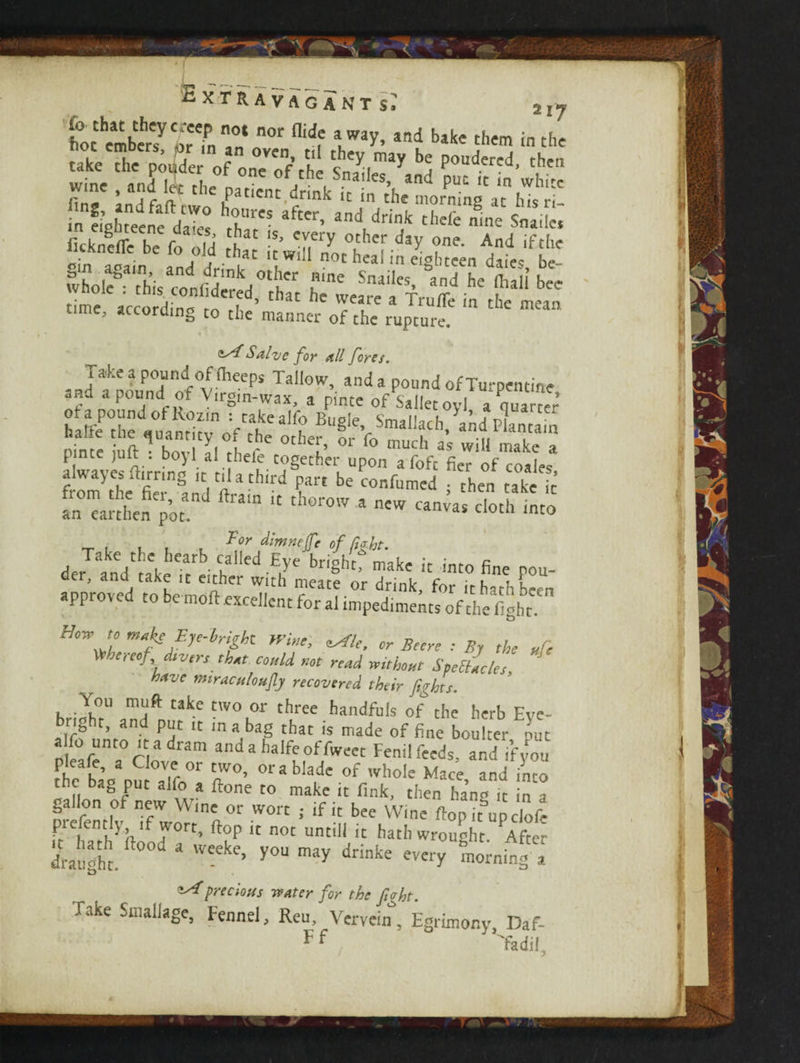 EXTRAVAGANTS. 217
so that they creep not nor slide away, and bake them in the
hot embers, or in an oven, til they may be poudered, then
take the pouder of one of the Snailes, and put it in white
wine, and let the patient drink it in the morning at his ri-
sing, and fast two houres after, and drink these nine Snailes
in eighteene daies, that is, every other day one. And if the
sicknesse be so old that it will not heal in eighteen daies, be-
gin again, and drink other nine Snailes, and he shall bee
whole: this considered, that he weare a Trusse in the mean
time, according to the manner of the rupture.
A Salve for all sores.
Take a pound of sheeps Tallow, and a pound of Turpentine,
and a pound of Virgin-wax, a pinte of Sallet oyl, a quarter
of a pound of Rozin: take also Bugle, Smallach, and Plantain
halfe the quantity of the other, or so much as will make a
pinte just: boyl al these together upon a soft fier of coales,
alwayes stirring it til a third part be consumed; then take it
from the fier, and strain it thorow a new canvas cloth into
an earthen pot.
For dimnesse of sight.
Take the hearb called Eye bright, make it into fine pou-
der, and take it either with meate or drink, for it hath been
approved to be most excellent for al impediments of the sight.
How to make Eye-bright Wine, Ale, or Beere: By the use
Whereof, divers that could not read without Spectacles,
have miraculously recovered their sights.
You must take two or three handfuls of the herb Eye-
bright, and put it in a bag that is made of fine boulter, put
also unto it a dram and a halfe of sweet Fenil seeds, and if you
please, a Clove or two, or a blade of whole Mace, and into
the bag put also a stone to make it sink, then hang it in a
gallon of new Wine or wort; if it bee Wine stop it up close
presently, if wort, stop it not untill it hath wrought. After
it hath stood a weeke, you may drinke every morning a
draught.
A precious water for the sight.
Take Smallage, Fennel, Reu, Vervein, Egrimony, Daf-
Ff fadil,